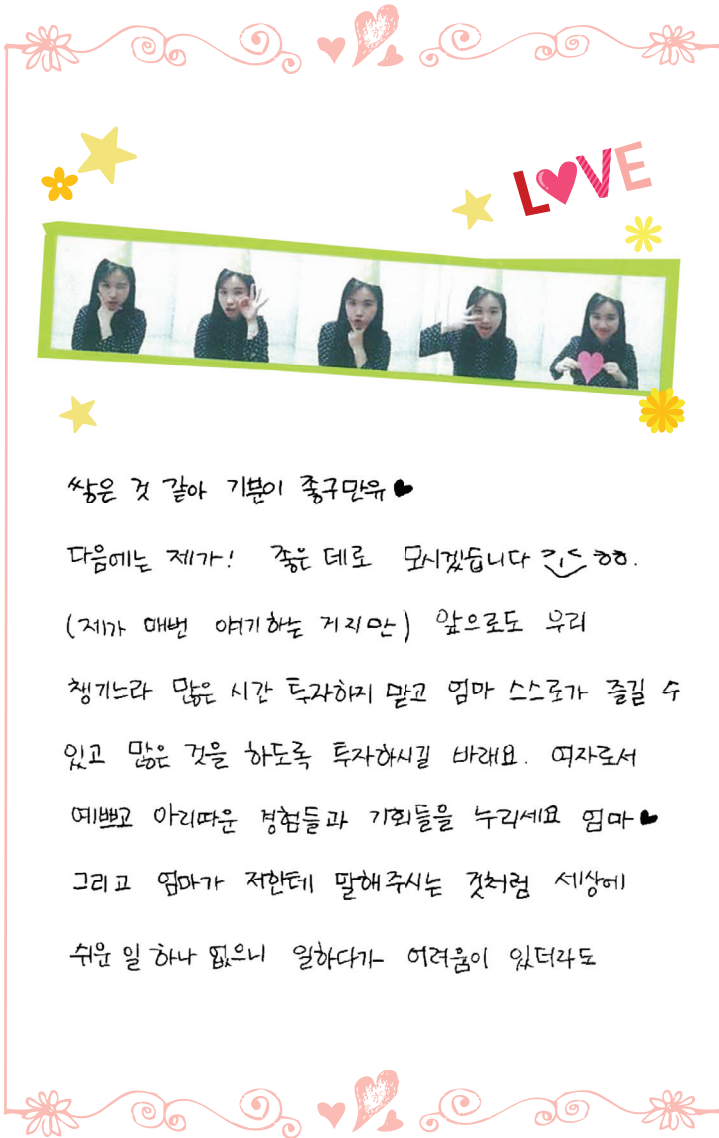 LOVE
쌓은 것 같아 기분이 좋구만유♥
다음에는 제가! 좋은 데로 모시겠습니다 ㅎㅎ.
(제가 매번 얘기하는 거지만) 앞으로도 우리
챙기느라 많은 시간 투자하지 말고 엄마 스스로가 즐길 수
있고 많은 것을 하도록 투자하시길 바래요. 여자로서
예쁘고 아리따운 경험들과 기회들을 누리세요 엄마♥
그리고 엄마가 저한테 말해주시는 것처럼 세상에
쉬운 일 하나 없으니 일하다가 어려움이 있더라도